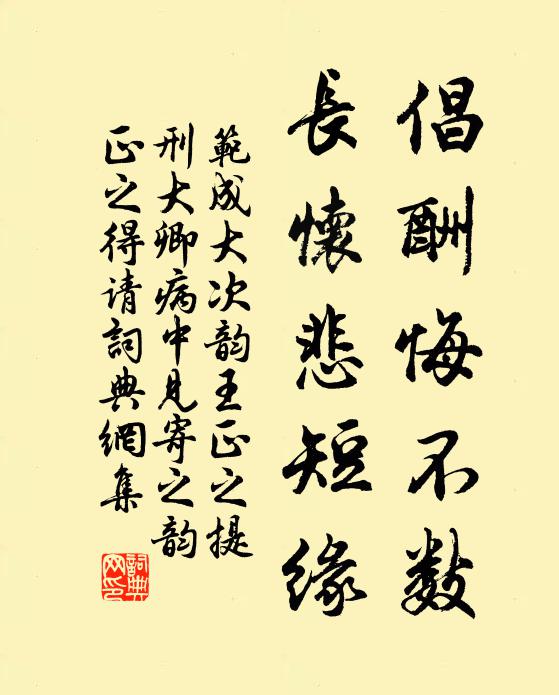 倡酬悔不數
長懷悲短緣
範成大次韵王正之提
刑大卿病中見寄之韵
正之得请詞典網集
詞典
网印